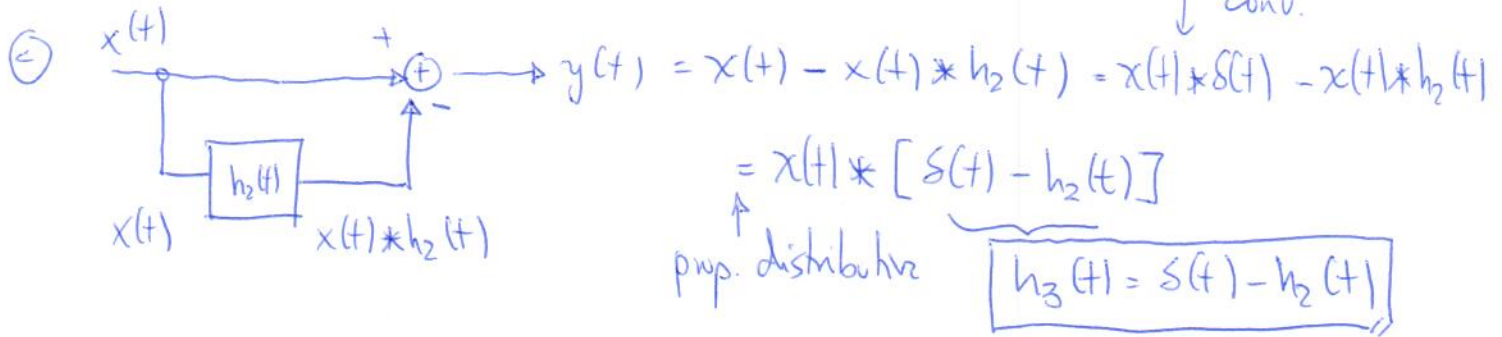 ↓ conv.
c x(t) + + → y(t) = x(t) - x(t) * h₂(t) = x(t) * δ(t) - x(t) * h₂(t)
-
h₂(t) = x(t) * [δ(t) - h₂(t)]
x(t) x(t) * h₂(t) ↑
prop. distributiva h₃(t) = δ(t) - h₂(t)